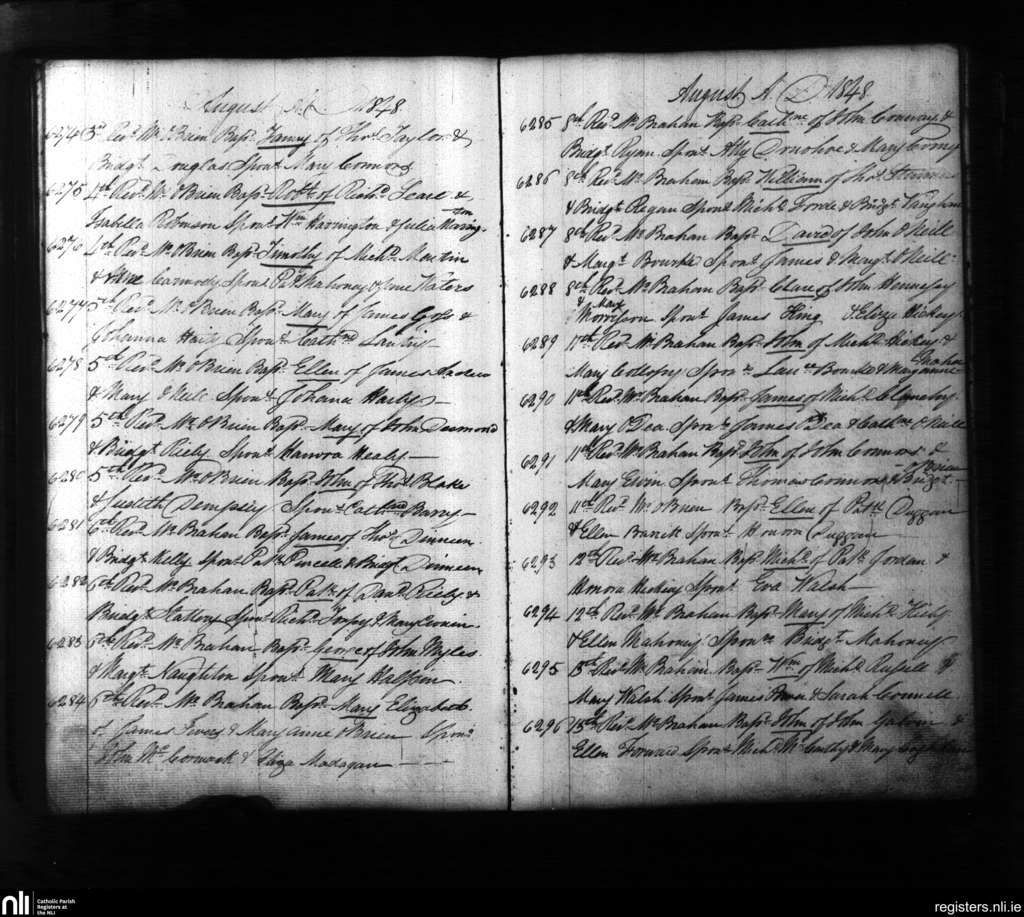 August A D 1848
6274 3rd Revd Mr O'Brien Bapt Fanny of Thos Taylor &
Bridgt Douglas Spont Mary Connors
6275 4th Revd Mr O'Brien Bapt Robt of Richd &
Isabella Robinson Spont Wm Harrington & Julia
6276 4th Revd Mr O'Brien Bapt Timothy of Michl Martin
& Carmody Spont Patk Mahoney & Waters
6277 5th Revd Mr O'Brien Bapt Mary of James Goss &
Johanna Spont Cathne
6278 5th Revd Mr O'Brien Bapt Ellen of James
& Mary O'Neile Spont Johana
6279 5th Revd Mr O'Brien Bapt Mary of John Desmond
& Bridgt Spont Hanora
6280 5th Revd Mr O'Brien Bapt John of Blake
& Judith Dempsey Spont Barry
6281 6th Revd Mr Brahan Bapt James of Thos Dinneen
& Bridgt Kelly Spont Patk Purcell & Bridgt Dinneen
6282 6th Revd Mr Brahan Bapt Patk of Danl &
Bridgt Slattery Spont Richd & Mary
6283 6th Revd Mr Brahan Bapt George of John Myles
& Margt Naughton Spont Mary
6284 6th Revd Mr Brahan Bapt Mary Elizabeth
of James & Mary Anne O'Brien Spont
John McCormack & Eliza Madagan
August A D 1848
6285 8th Revd Mr Brahan Bapt Cathne of John Conway &
Bridgt Ryan Spont Donohoe & Mary
6286 8th Revd Mr Brahan Bapt William of Thos
& Bridgt Regan Spont Michl Forde & Bridgt Vaughan
6287 8th Revd Mr Brahan Bapt David of John O'Neill
& Margt Bourke Spont James & Margt O'Neill
6288 8th Revd Mr Brahan Bapt Clare of John Hennessy
& Mary
Morrisson Spont James King & Eliza Hickey
6289 Revd Mr Brahan Bapt John of Michl Hickey &
Mary Spont Bourke & Maryanne
6290 11th Revd Mr Brahan Bapt James of Michl
& Mary O'Dea Spont James O'Dea & Cathne O'Neill
6291 11th Revd Mr Brahan Bapt John of John Connors &
Mary Spont Thomas Connors & Bridgt O'Brien
6292 11th Revd Mr O'Brien Bapt Ellen of Patk Duggan
& Ellen Spont Honora Duggan
6293 12th Revd Mr Brahan Bapt Michl of Patk Jordan &
Honora Spont Eva Walsh
6294 12th Revd Mr Brahan Bapt Mary of Michl
& Ellen Mahoney Spont Bridgt Mahoney
6295 15th Revd Mr Brahan Bapt Wm of Michl Russell &
Mary Walsh Spont James & Sarah Connell
6296 15th Revd Mr Brahan Bapt John of John Galvin &
Ellen Spont Michl McCarthy & Mary
nli Catholic Parish
Registers at
the NLI
registers.nli.ie